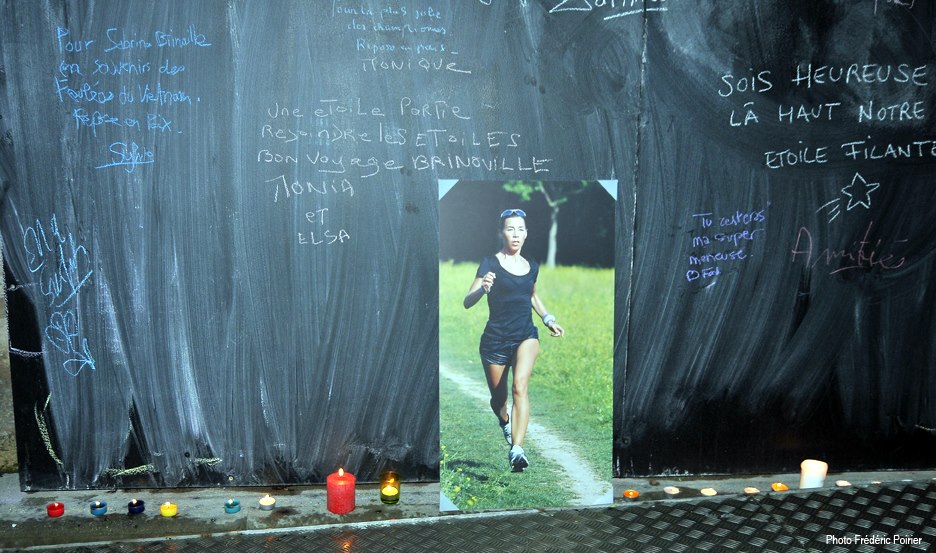 Pour la plus jolie
des championnes
Repose en paix
MONIQUE
Pour Sabrina Brinville
en souvenir des
Foulées du Vietnam.
Repose en Paix.
Sylvie
Une ETOILE PARTIE
REJOINDRE les ETOILES
BON VOYAGE BRINOVILLE
MONIA
ET
ELSA
SOIS HEUREUSE
LÀ HAUT NOTRE
ETOILE FILANTE
Tu resteras
ma super
meneuse.
Amitié
Photo Frédéric Poirier